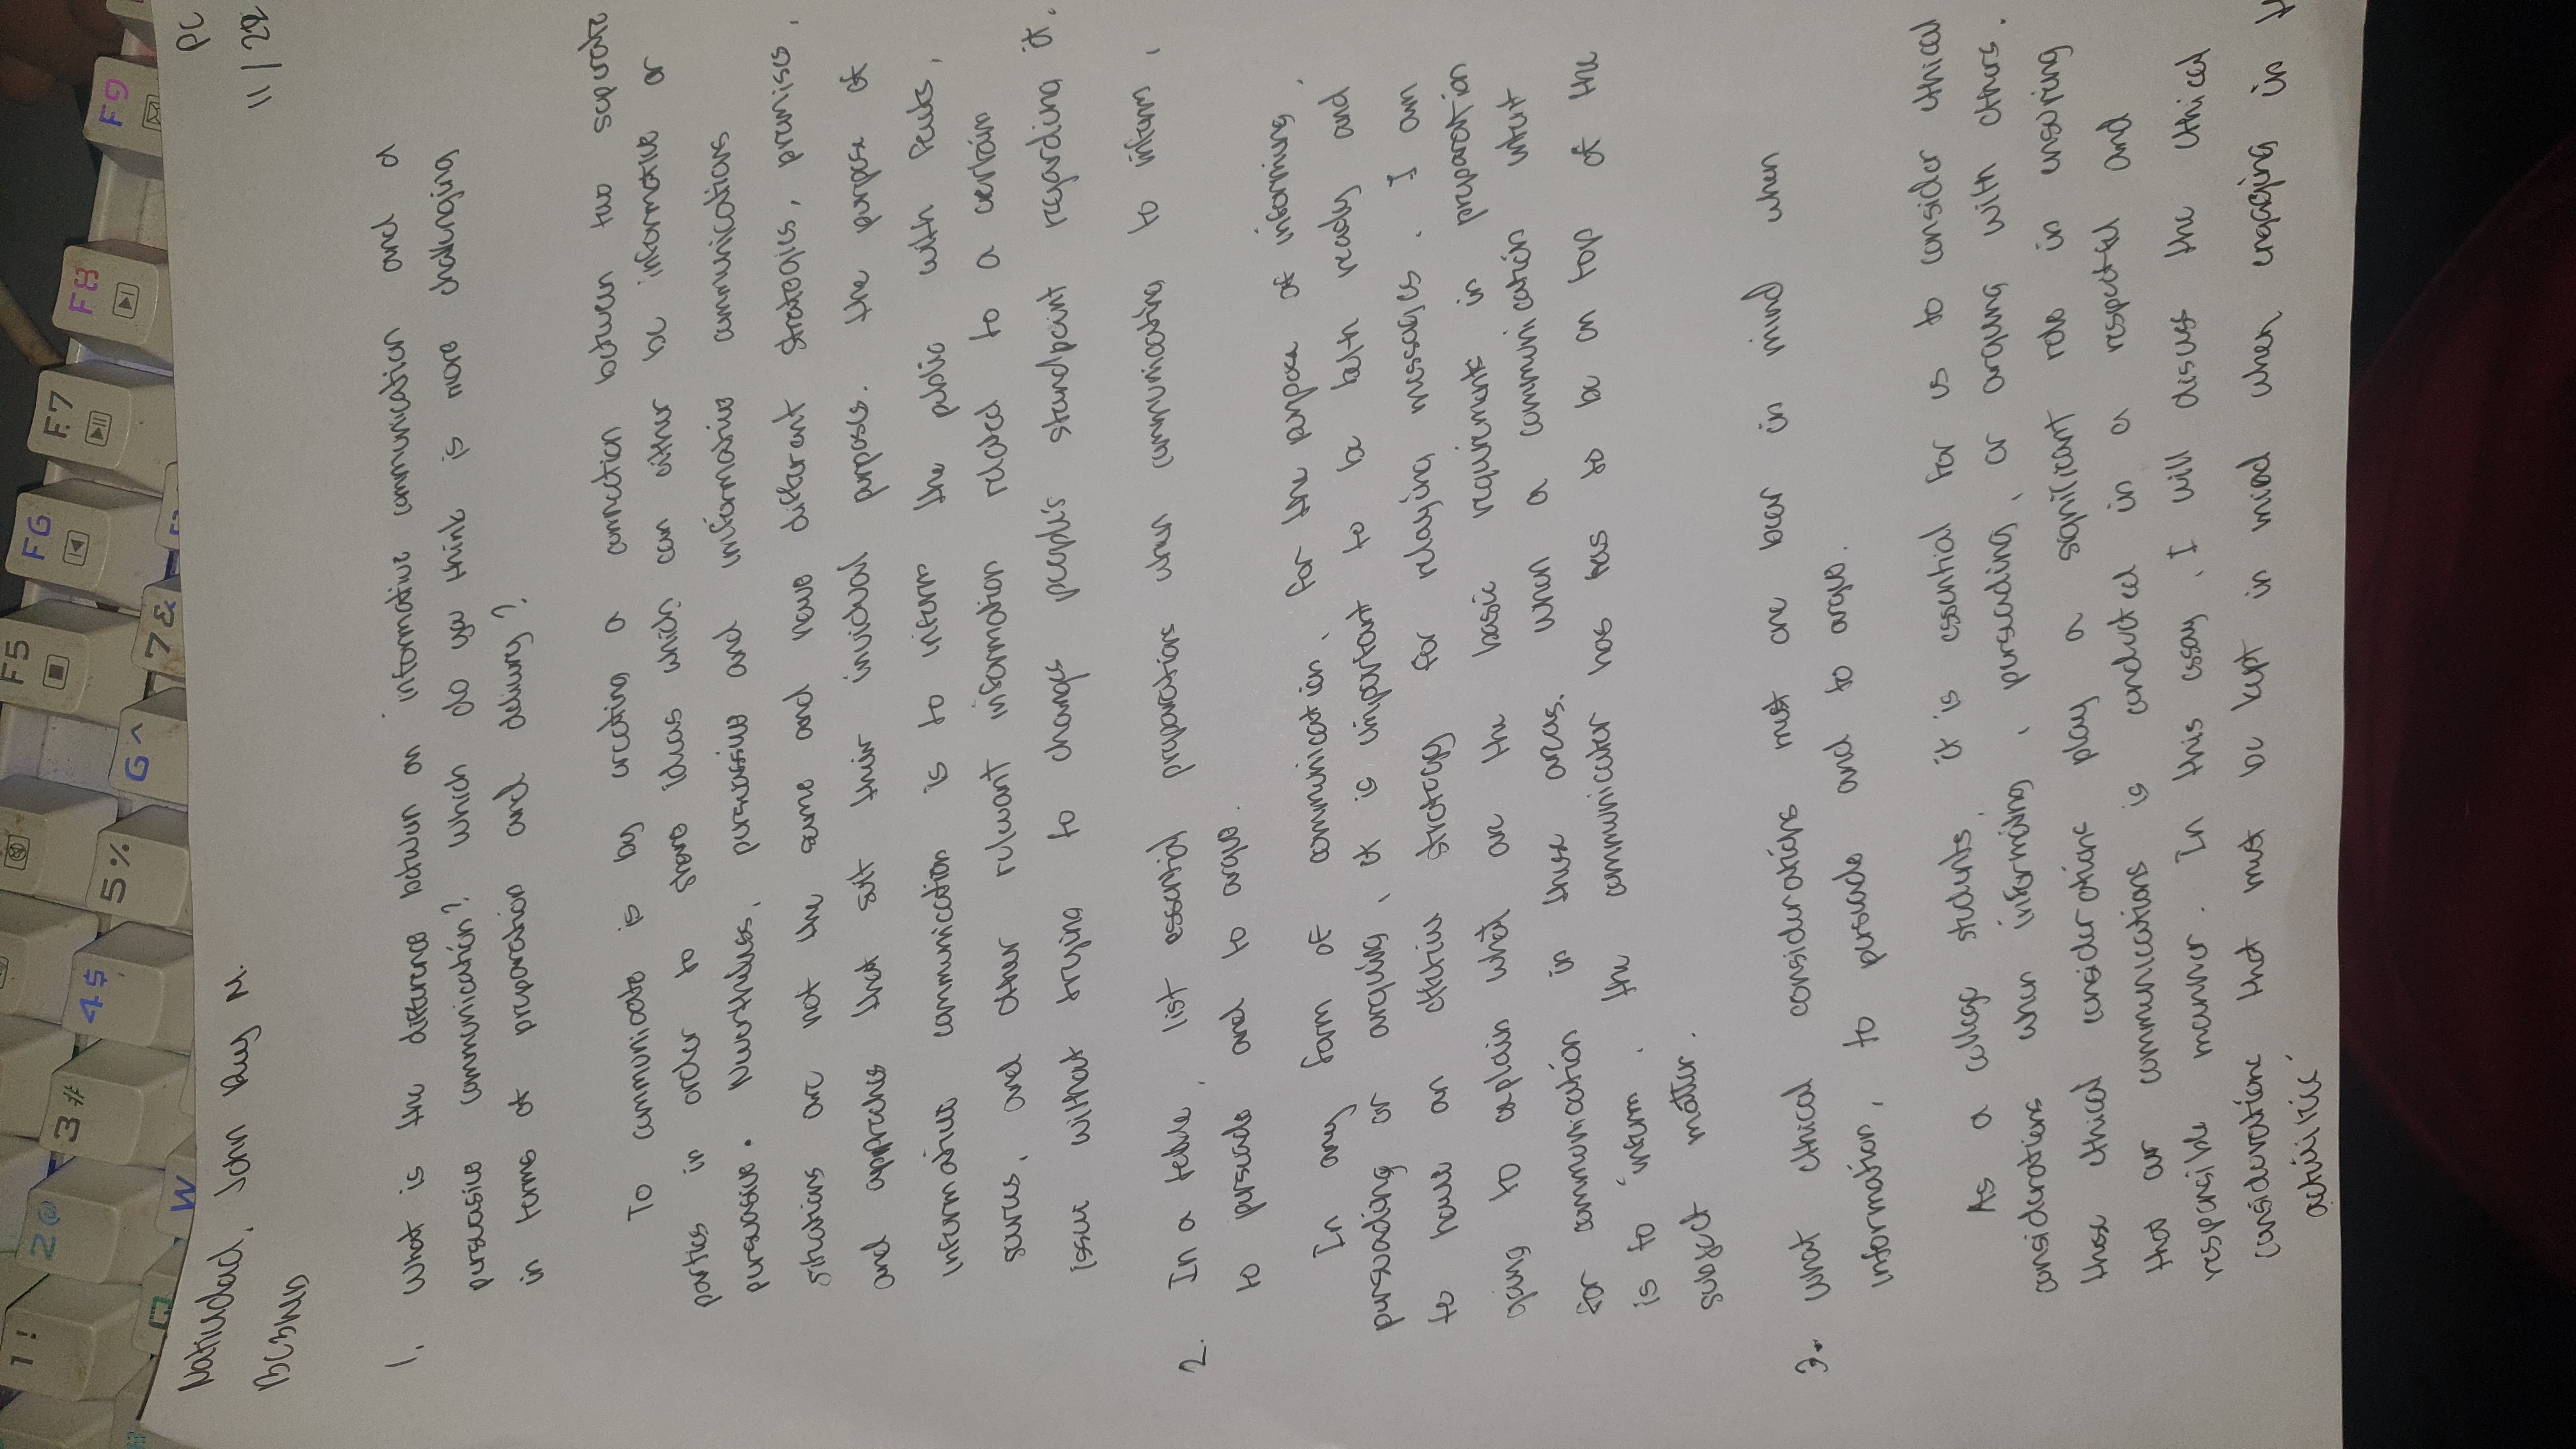 1!
2@
3#
4$
5%
6^
7&
F5
F6
F7
F8
F9
Q
W
Natiudad, John Ruy M.
PC
11/22
1. What is the difference between an informative communication and a
persuasive communication? Which do you think is more challenging
in terms of preparation and delivery?
To communicate is by creating a connection between two seperate
parties in order to share ideas which can either be informative or
persuasive. Nevertheless, persuassive and imformative communications
sitations are not the same and have different strategies, premises,
and approches that suit their invidual purposes. The purpose of
informative communication is to inform the public with facts,
sources, and other relevant information related to a certain
issue without trying to change people's standpoint regarding it.
2. In a table, list essential preparations when communicating to inform,
to persuade and to argue.
In any form of communication, for the purpose of informing,
persuading or arguing, it is important to be both ready and
to have an effective strategy for relaying messages. I am
going to explain what are the basic requirements in preparation
for communication in these areas. When a communication intent
is to inform, the communicator has has to be on top of the
subject matter.
3. What ethical considerations must one bear in mind when
information, to persuade and to argue.
As a college students, it is essential for us to consider ethical
considerations when informing, persuading, or arguing with others.
these ethical considerations play a significant role in ensuring
that our communications is conducted in a respectful and
responsible manner. In this essay, I will discuss the ethical
considerations that must be kept in mind when engaging in
activities